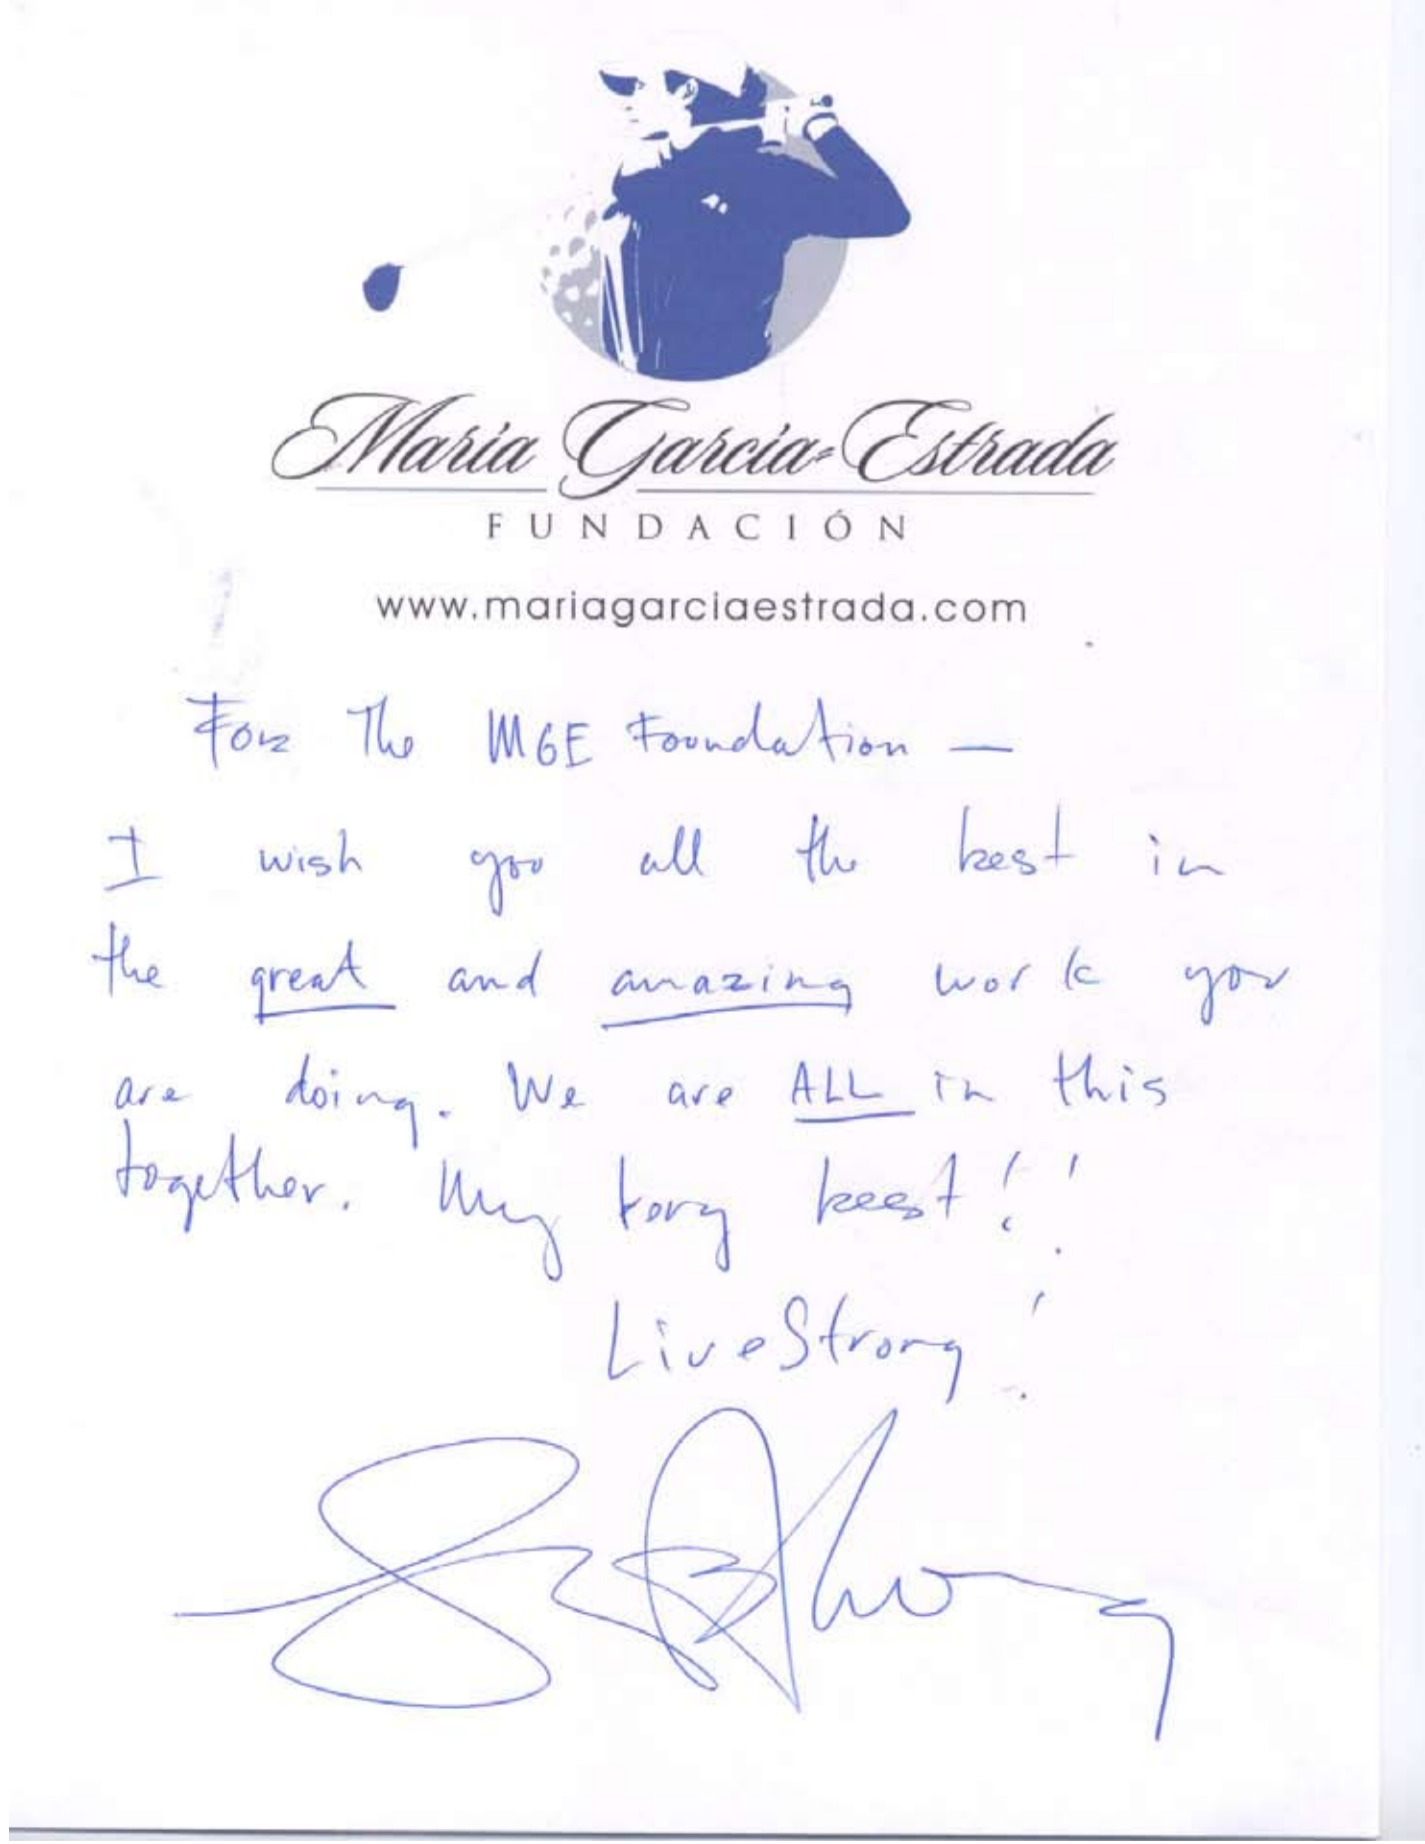 María García-Estrada
FUNDACIÓN
www.mariagarciaestrada.com
For The MGE Foundation —
I wish you all the best in
the great and amazing work you
are doing. We are ALL in this
together. My very best!!
LiveStrong!